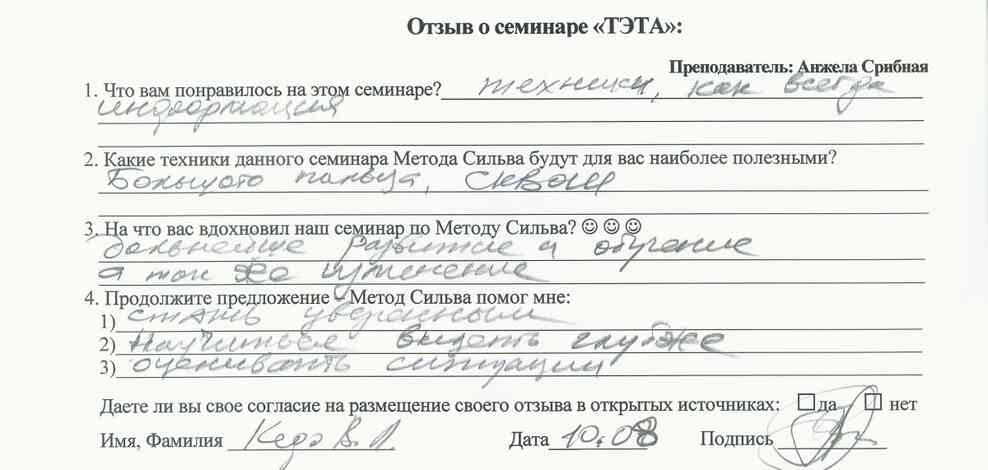 Отзыв о семинаре «ТЭТА»:
Преподаватель: Анжела Срибная
1. Что вам понравилось на этом семинаре? техники, как всегда
информация
2. Какие техники данного семинара Метода Сильва будут для вас наиболее полезными?
Большого пальца, сквош
3. На что вас вдохновил наш семинар по Методу Сильва? ☺ ☺ ☺
дальнейшие развитие и обучение
а так же изменение
4. Продолжите предложение – Метод Сильва помог мне:
1) стать уверенным
2) научиться видеть глубже
3) оценивать ситуации
Даете ли вы свое согласие на размещение своего отзыва в открытых источниках: ☐ да ☐ нет
Имя, Фамилия В. Дата 10.08 Подпись